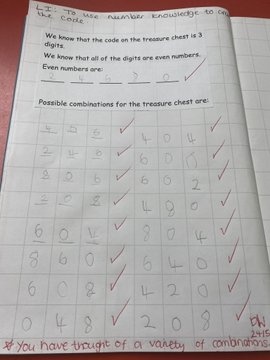 LI: To use number knowledge to
the code
We know that the code on the treasure chest is 3
digits.
We know that all of the digits are even numbers.
Even numbers are:
2 4 6 8 0
Possible combinations for the treasure chest are:
4 0 6 4 0 4
2 4 6 6 0 0
8 0 6 6 0 2
2 0 8 4 8 0
6 0 4 8 0 4
8 6 0 6 4 0
6 0 8 4 2 0
0 4 8 2 0 8
You have thought of a variety of combinations